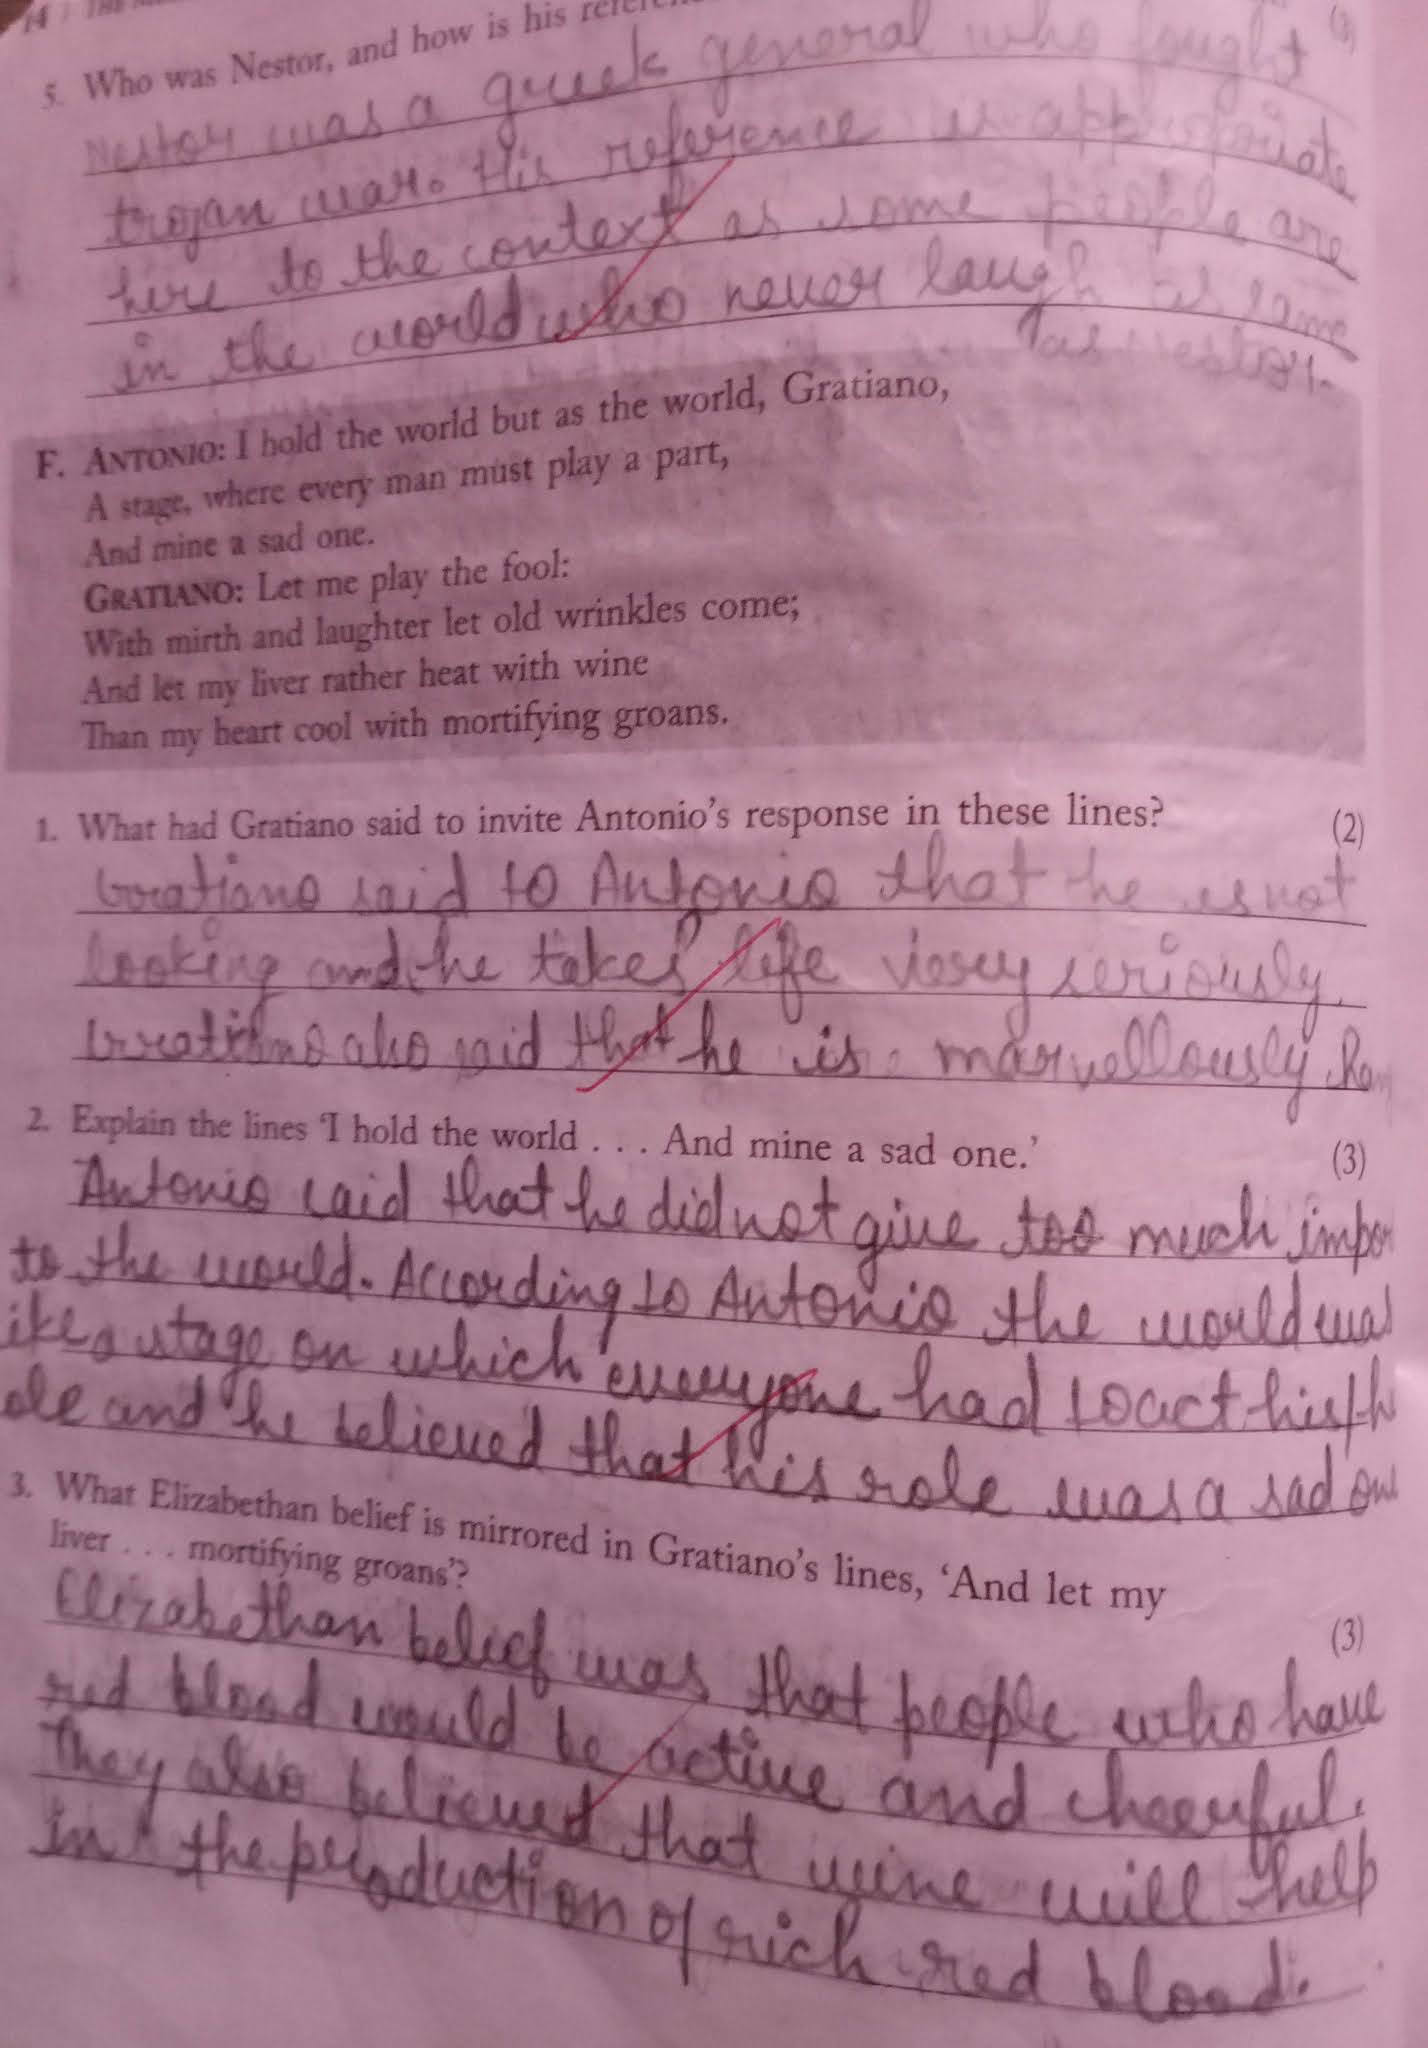 14 | THE
5. Who was Nestor, and how is his
(3)
Nestor was a greek general who fought
trojan war. His reference is appropriate
here to the context as some people are
in the world who never laugh as same
as Nestor.
F. ANTONIO: I hold the world but as the world, Gratiano,
A stage, where every man must play a part,
And mine a sad one.
GRATIANO: Let me play the fool:
With mirth and laughter let old wrinkles come;
And let my liver rather heat with wine
Than my heart cool with mortifying groans.
1. What had Gratiano said to invite Antonio's response in these lines? (2)
Gratiano said to Antonio that he is not
looking and he takes life very seriously.
Gratiano also said that he is marvellously
2. Explain the lines 'I hold the world . . . And mine a sad one.' (3)
Antonio said that he did not give too much impor
to the world. According to Antonio the world was
ike a stage on which everyone had to act his/h
ole and he believed that his role was a sad one
3. What Elizabethan belief is mirrored in Gratiano's lines, 'And let my
liver . . . mortifying groans'? (3)
Elizabethan belief was that people who have
red blood would be active and cheerful.
They also believed that wine will help
in the production of rich red blood.